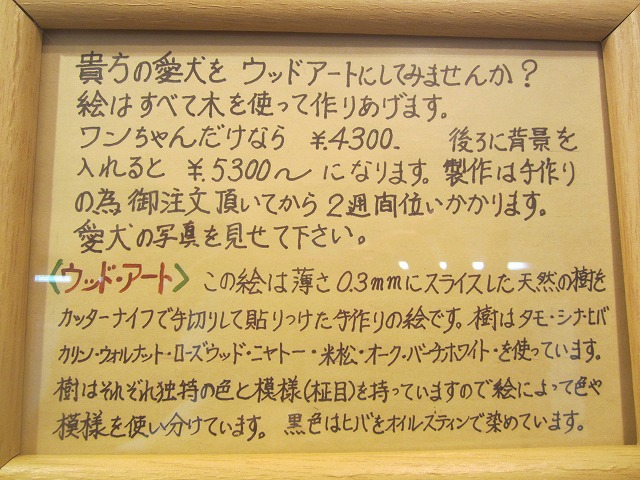 貴方の愛犬を ウッドアートにしてみませんか?
絵はすべて木を使って作りあげます。
ワンちゃんだけなら ¥.4300- 後ろに背景を
入れると ¥.5300〜 になります。製作は手作り
の為 御注文頂いてから 2週間位いかかります。
愛犬の写真を見せて下さい。
<ウッド・アート> この絵は薄さ 0.3mmにスライスした天然の樹を
カッターナイフで手切りして貼りつけた手作りの絵です。樹はタモ・シナ・ヒバ
カリン・ウォルナット・ローズウッド・ニヤトー・米松・オーク・バーチホワイト・を使っています。
樹はそれぞれ独特の色と模様(柾目)を持っていますので絵によって色や
模様を使い分けています。 黒色はヒバをオイルスティンで染めています。